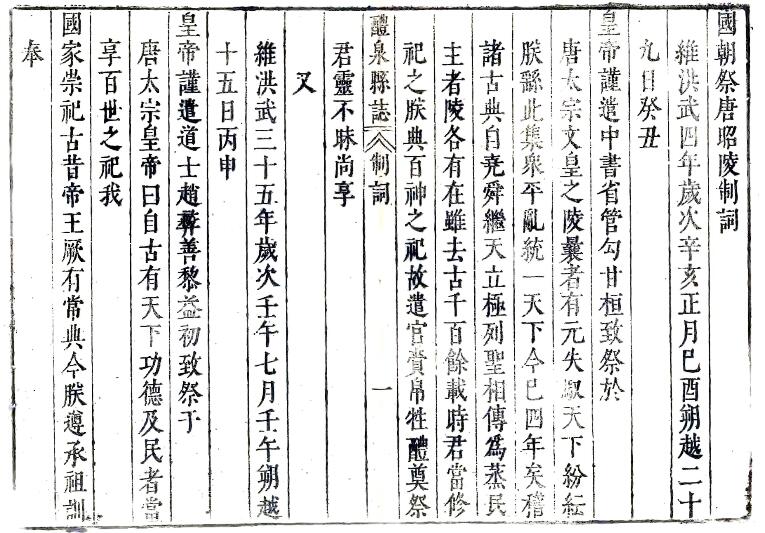 國朝祭唐昭陵制詞
維洪武四年歲次辛亥正月巳酉朔越二十
九日癸丑
皇帝謹遣中書省管勾甘桓致祭於
唐太宗文皇之陵曩者有元失馭天下紛紜
朕繇此集衆平亂統一天下今巳四年矣稽
諸古典自堯舜繼天立極列聖相傳爲蒸民
主者陵各有在雖去古千百餘載時君當修
祀之朕典百神之祀故遣官賫帛牲醴奠祭
醴泉縣誌 制詞 一
君靈不昧尚享
又
維洪武三十五年歲次壬午七月壬午朔越
十五日丙申
皇帝謹遣道士趙彞善黎益初致祭于
唐太宗皇帝曰自古有天下功德及民者當
享百世之祀我
國家崇祀古昔帝王厥有常典今朕遵承祖訓
奉